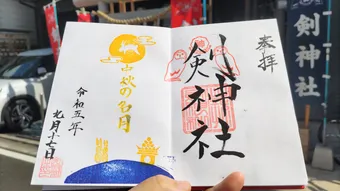 奉拝
神社
剣神社
中秋の名月
令和五年
九月十七日
剣神社